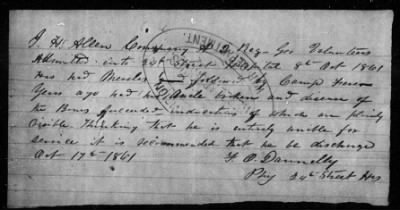 J. H. Allen Company D 2 Reg Ga Volunteers
Admitted into 24th Street Hospital 8th Oct 1861
Has had Measles and followed by Camp Fever
Years ago had his Ancle broken and disease of
the Bones succeeded indications of which are plainly
visible Thinking that he is entirely unable for
service it is recommended that he be discharge
Oct 17th 1861 F. O. Dannelly
Phy 24th Street Hos